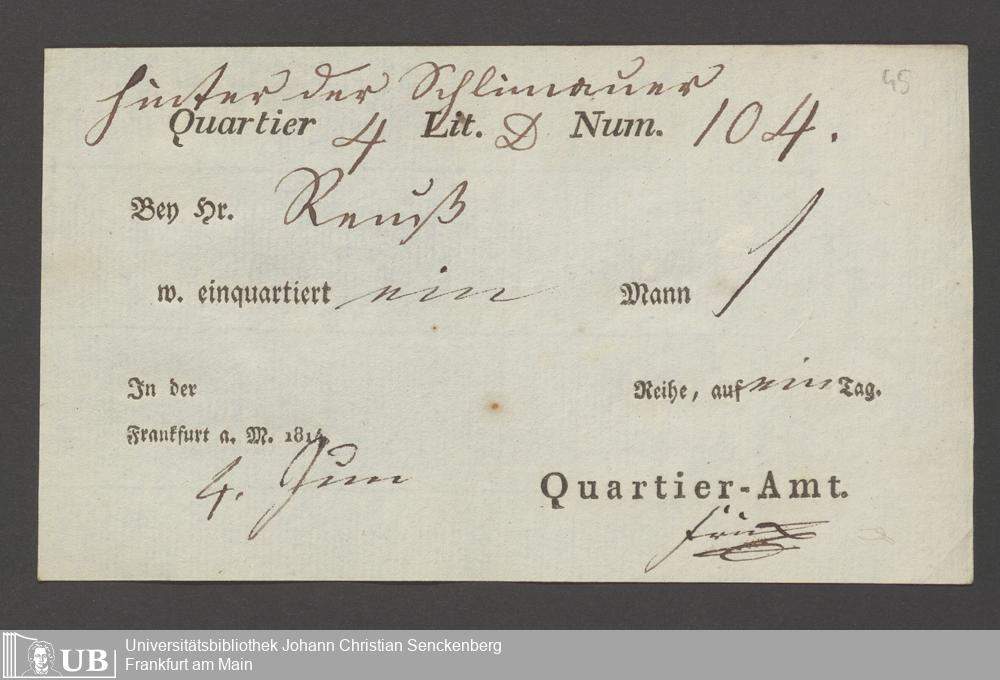 hinter der Schlimauer
45
Quartier 4 Lit. D Num. 104.
Bey Hr. Reuß
w. einquartiert ein Mann 1
In der Reihe, auf ein Tag.
Frankfurt a. M. 1814
4. Jun
Quartier-Amt.
UB Universitätsbibliothek Johann Christian Senckenberg
Frankfurt am Main